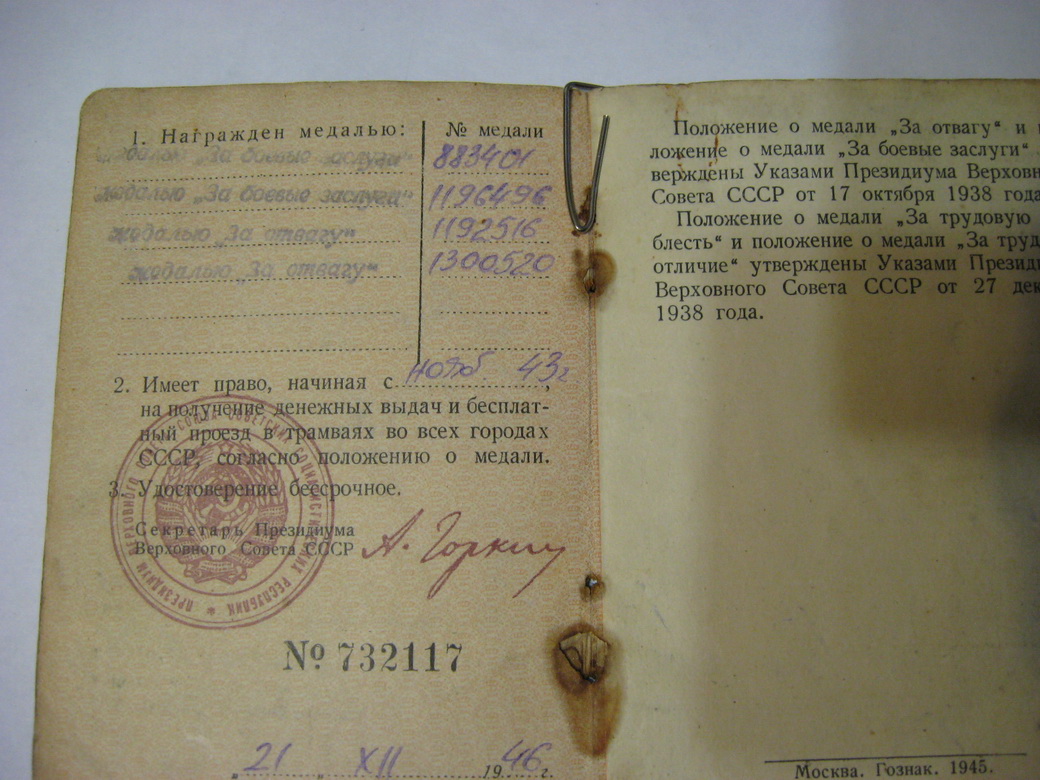 1. Награжден медалью:
№ медали
медалью „За боевые заслуги“
883401
медалью „За боевые заслуги“
1196496
медалью „За отвагу“
1192516
медалью „За отвагу“
1300520
2. Имеет право, начиная с нояб 43г,
на получение денежных выдач и бесплат-
ный проезд в трамваях во всех городах
СССР, согласно положению о медали.
3. Удостоверение бессрочное.
Секретарь Президиума
Верховного Совета СССР
А. Горкин
ПРЕЗИДИУМ ВЕРХОВНОГО СОВЕТА СОЮЗА СОВЕТСКИХ СОЦИАЛИСТИЧЕСКИХ РЕСПУБЛИК *
№ 732117
„21„ XII 1946г.
Положение о медали „За отвагу“ и
ложение о медали „За боевые заслуги“
верждены Указами Президиума Верховн
Совета СССР от 17 октября 1938 года
Положение о медали „За трудовую
блесть“ и положение о медали „За труд
отличие“ утверждены Указами Президи
Верховного Совета СССР от 27 дек
1938 года.
Москва. Гознак. 1945.